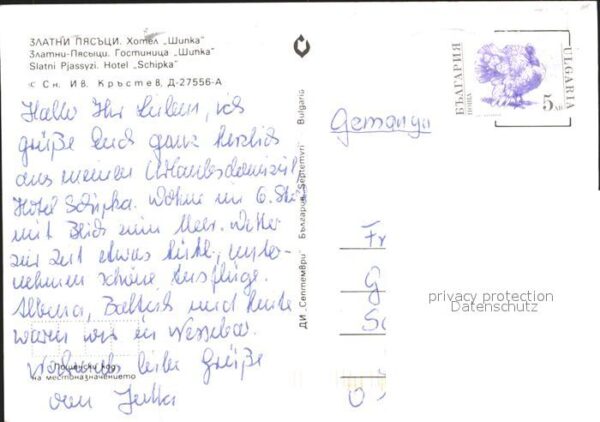 ЗЛАТНИ ПЯСЪЦИ. Хотел „Шипка"
Златни-Пясыци. Гостиница „Шипка"
Slatni Pjassyzi. Hotel „Schipka"
с Сн. Ив. Кръстев, Д-27556-А
Hallo Ihr Lieben, ich
grüße Euch ganz herzlich
aus meinem Urlaubsdomizil
Hotel Schipka. Wohne im 6. Stock
mit Blick zum Meer. Wetter
zur Zeit etwas kühl, unter-
nehmen schöne Ausflüge.
Albena, Baltschik und heute
waren wir in Nessebar.
liebe Grüße
von Jutta
Пощенски код
на местоназначението
ДИ „Септември" България Septemvri Bulgaria
БЪЛГАРИЯ
ПОЩА
BULGARIA
5 лв
Germanya
Fr
G
Sc
O
privacy protection
Datenschutz